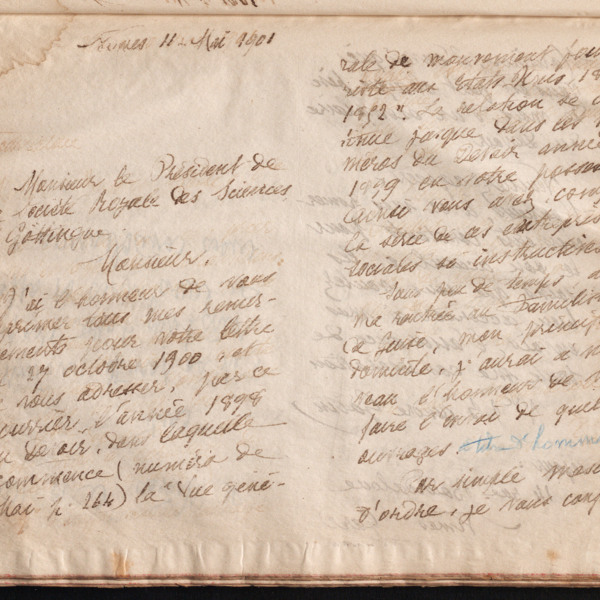 Nimes 11 Mai 1901
Monsieur le Président de
Société Royale des Sciences
Göttingue.
Monsieur,
J'ai l'honneur de vous
primer tous mes remer-
ements pour votre lettre
27 octobre 1900 et
vous adresser, par ce
ourrier, l'année 1898
u Devoir, dans laquelle
commence (numéro de
Mai p. 264) la "Vue géné-
rale de mouvement fou
riste aux Etats-Unis, 18
1852". La relation se c
tinue jusque dans les n
méros du Devoir anné
1899 en votre posses
Ainsi vous avez com
la série de ces entrepris
sociales si instructives.
Sous peu de temps, à
ma rentrée au Familis
Guise, mon princip
domicile, j'aurai à n
veau l'honneur de
faire l'envoi de quel
ouvrages
Par simple mes
d'ordre, je vous con